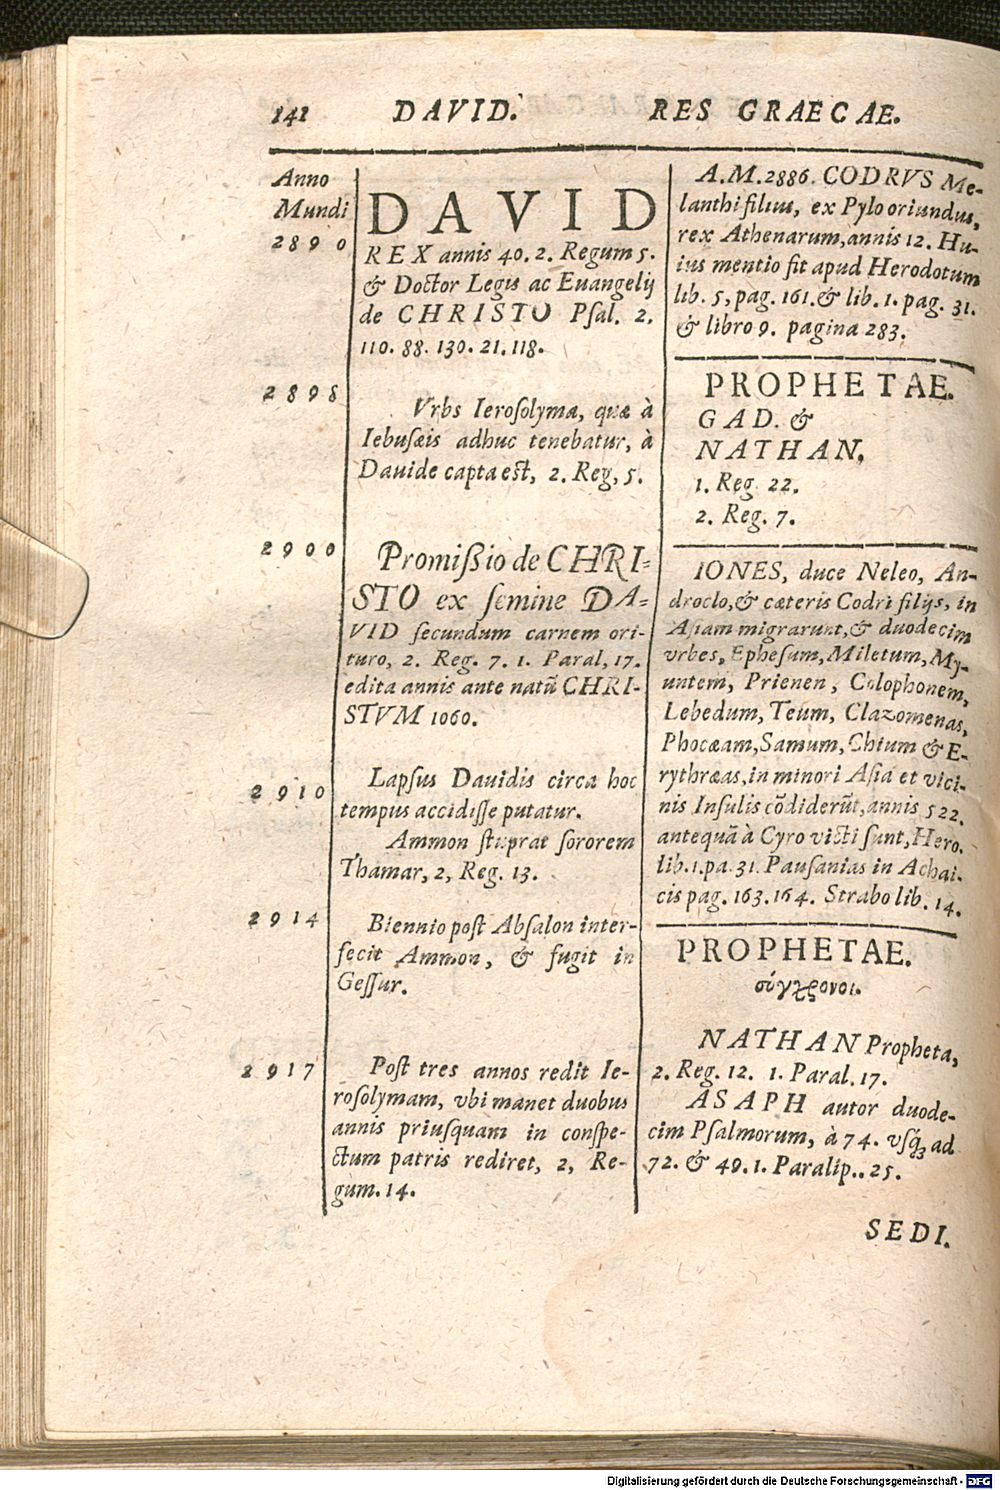 141 DAVID. RES GRAECAE.
Anno
Mundi
2890
DAVID
REX annis 40. 2. Regum 5.
& Doctor Legis ac Euangelij
de CHRISTO Psal. 2.
110. 88. 130. 21. 118.
2898
Vrbs Ierosolyma, quæ à
Iebusæis adhuc tenebatur, à
Dauide capta est, 2. Reg, 5.
2900
Promißio de CHRI-
STO ex semine DA-
VID secundum carnem ori-
turo, 2. Reg. 7. 1. Paral, 17.
edita annis ante natũ CHRI-
STVM 1060.
2910
Lapsus Dauidis circa hoc
tempus accidisse putatur.
Ammon stuprat sororem
Thamar, 2, Reg. 13.
2914
Biennio post Absalon inter-
fecit Ammon, & fugit in
Gessur.
2917
Post tres annos redit Ie-
rosolymam, vbi manet duobus
annis priusquam in conspe-
ctum patris rediret, 2, Re-
gum. 14.
A.M. 2886. CODRVS Me-
lanthi filius, ex Pylo oriundus,
rex Athenarum, annis 12. Hu-
ius mentio fit apud Herodotum
lib. 5, pag. 161. & lib. 1. pag. 31.
& libro 9. pagina 283.
PROPHETAE.
GAD. &
NATHAN.
1. Reg. 22.
2. Reg. 7.
IONES, duce Neleo, An-
droclo, & cæteris Codri filijs, in
Asiam migrarunt, & duodecim
vrbes, Ephesum, Miletum, My-
untem, Prienen, Colophonem,
Lebedum, Teum, Clazomenas,
Phocæam, Samum, Chium & E-
rythræas, in minori Asia et vici-
nis Insulis cõdiderũt, annis 522.
antequã à Cyro victi sunt, Hero.
lib. 1. pa. 31. Pausanias in Achai-
cis pag. 163. 164. Strabo lib. 14.
PROPHETAE.
σύγχρονοι.
NATHAN Propheta,
2. Reg. 12. 1. Paral. 17.
ASAPH autor duode-
cim Psalmorum, à 74. vsq́; ad
72. & 49. 1. Paralip.. 25.
SEDI.
Digitalisierung gefördert durch die Deutsche Forschungsgemeinschaft - DFG